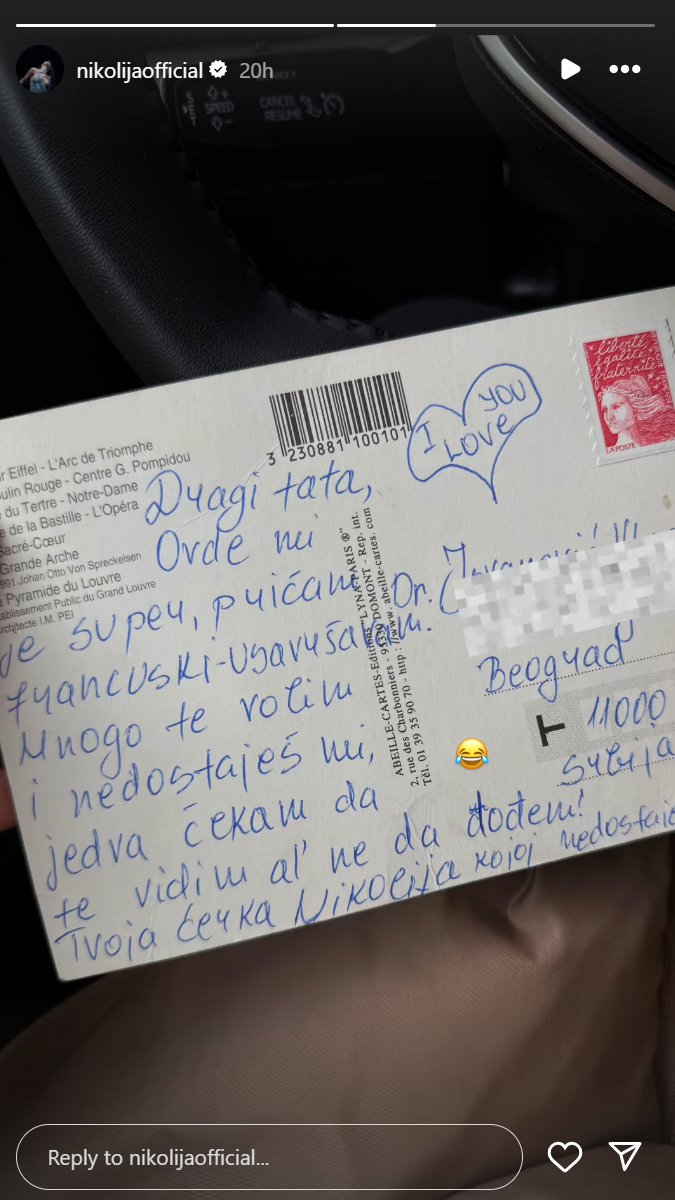 nikolijaofficial 20h
SPEED
CANCEL
RESUME
liberté
égalité
fraternité
LA POSTE
I LOVE YOU
3 230881 100101
Eiffel - L'Arc de Triomphe
Rouge - Centre G. Pompidou
du Tertre - Notre-Dame
de la Bastille - L'Opéra
Sacré-Cœur
Grande Arche
1991 Johan Otto Von Spreckelsen
Pyramide du Louvre
Établissement Public du Grand Louvre
Architecte I.M. PEI
Dragi tata,
Ovde mi
je super, pričam
francuski-usavršavam.
Mnogo te volim
i nedostaješ mi,
jedva čekam da
te vidim al' ne da dođem!
😂
Tvoja ćerka Nikolija kojoj nedostaje
ABEILLE-CARTES-Editions "LYNA-PARIS ®"
2, rue des Charbonniers - 95330 DOMONT - Rep. int.
Tél. 01 39 35 90 70 - http://www.abeille-cartes.com
Dr.
Beograd
T 11000
Srbija
Reply to nikolijaofficial...